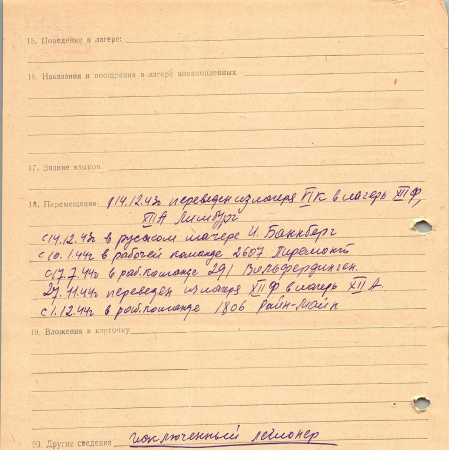 15. Поведение в лагере:
16. Наказания и поощрения в лагере военнопленных
17. Знание языков
18. Перемещения 14.12.43г переведен из лагеря VI К в лагерь XII Ф,
XII А Лимбург
с 14.12.43г в русском лагере И. Банкберг
с 10.1.44г в рабочей команде 2607 Пиремонт
с 17.7.44г в раб. команде 291 Вольфердинген.
27.11.44г переведен из лагеря XII Ф в лагерь XII А
с 1.12.44г в раб. команде 1806 Райн-Майн
19. Вложения в карточку
20. Другие сведения исключенный легионер